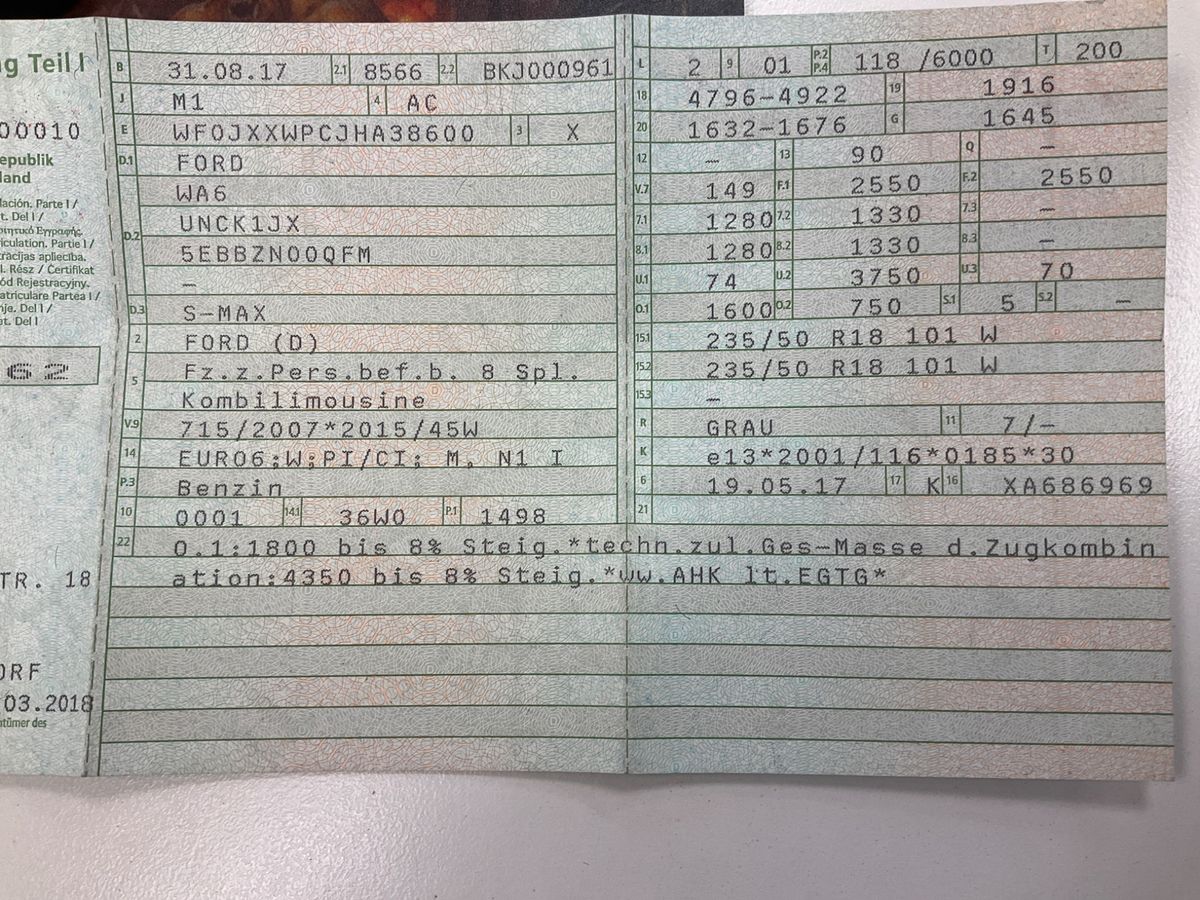 ng Teil I
00010
epublik
land
lación. Parte I /
t. Del I /
Εγγραφής.
riculation. Partie I /
trācijas apliecība.
I. Rész / Ċertifikat
ód Rejestracyjny.
atriculare Partea I /
nje. Del I /
et. Del I
62
TR. 18
ORF
03.2018
ntümer des
B 31.08.17 2.1 8566 2.2 BKJ000961
J M1 4 AC
E WF0JXXWPCJHA38600 3 X
D.1 FORD
D.2 WA6
UNCK1JX
5EBBZN00QFM
–
D.3 S-MAX
2 FORD (D)
5 Fz.z.Pers.bef.b. 8 Spl.
Kombilimousine
V.9 715/2007*2015/45W
14 EURO6;W;PI/CI; M, N1 I
P.3 Benzin
10 0001 14.1 36W0 P.1 1498
L 2 9 01 P.2 P.4 118 /6000 T 200
18 4796-4922 19 1916
20 1632-1676 G 1645
12 – 13 90 Q –
V.7 149 F.1 2550 F.2 2550
7.1 1280 7.2 1330 7.3 –
8.1 1280 8.2 1330 8.3 –
U.1 74 U.2 3750 U.3 70
O.1 1600 O.2 750 S.1 5 S.2 –
15.1 235/50 R18 101 W
15.2 235/50 R18 101 W
15.3 –
R GRAU 11 7/–
K e13*2001/116*0185*30
6 19.05.17 17 K 16 XA686969
21
22 O.1:1800 bis 8% Steig.*techn.zul.Ges-Masse d.Zugkombin
ation:4350 bis 8% Steig.*ww.AHK lt.EGTG*